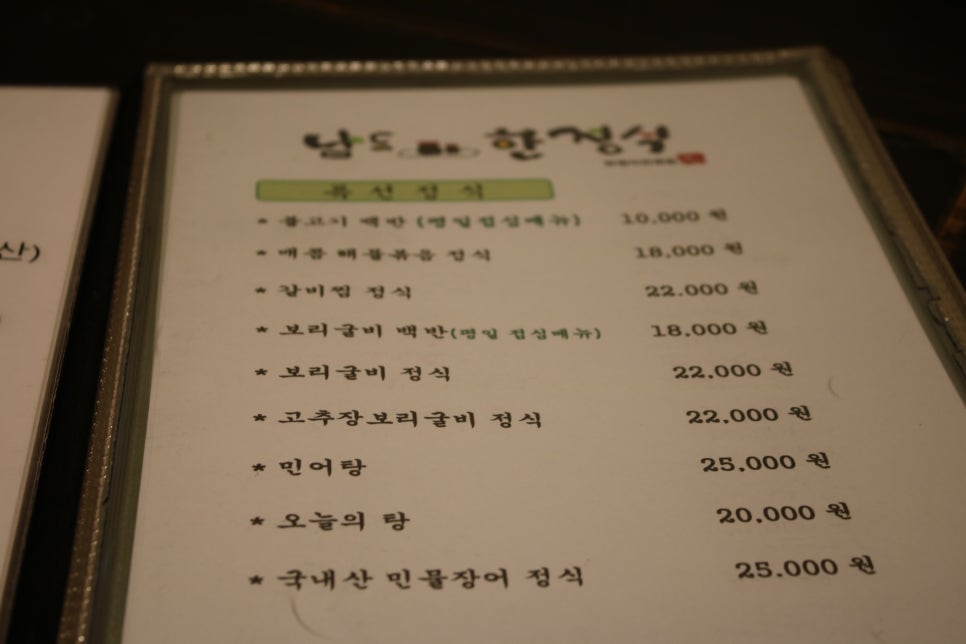 남도 한정식
특선정식
* 불고기 백반 (평일점심메뉴) 10,000 원
* 매콤 해물볶음 정식 18,000 원
* 갈비찜 정식 22,000 원
* 보리굴비 백반(평일 점심메뉴) 18,000 원
* 보리굴비 정식 22,000 원
* 고추장보리굴비 정식 22,000 원
* 민어탕 25,000 원
* 오늘의 탕 20,000 원
* 국내산 민물장어 정식 25,000 원
산)